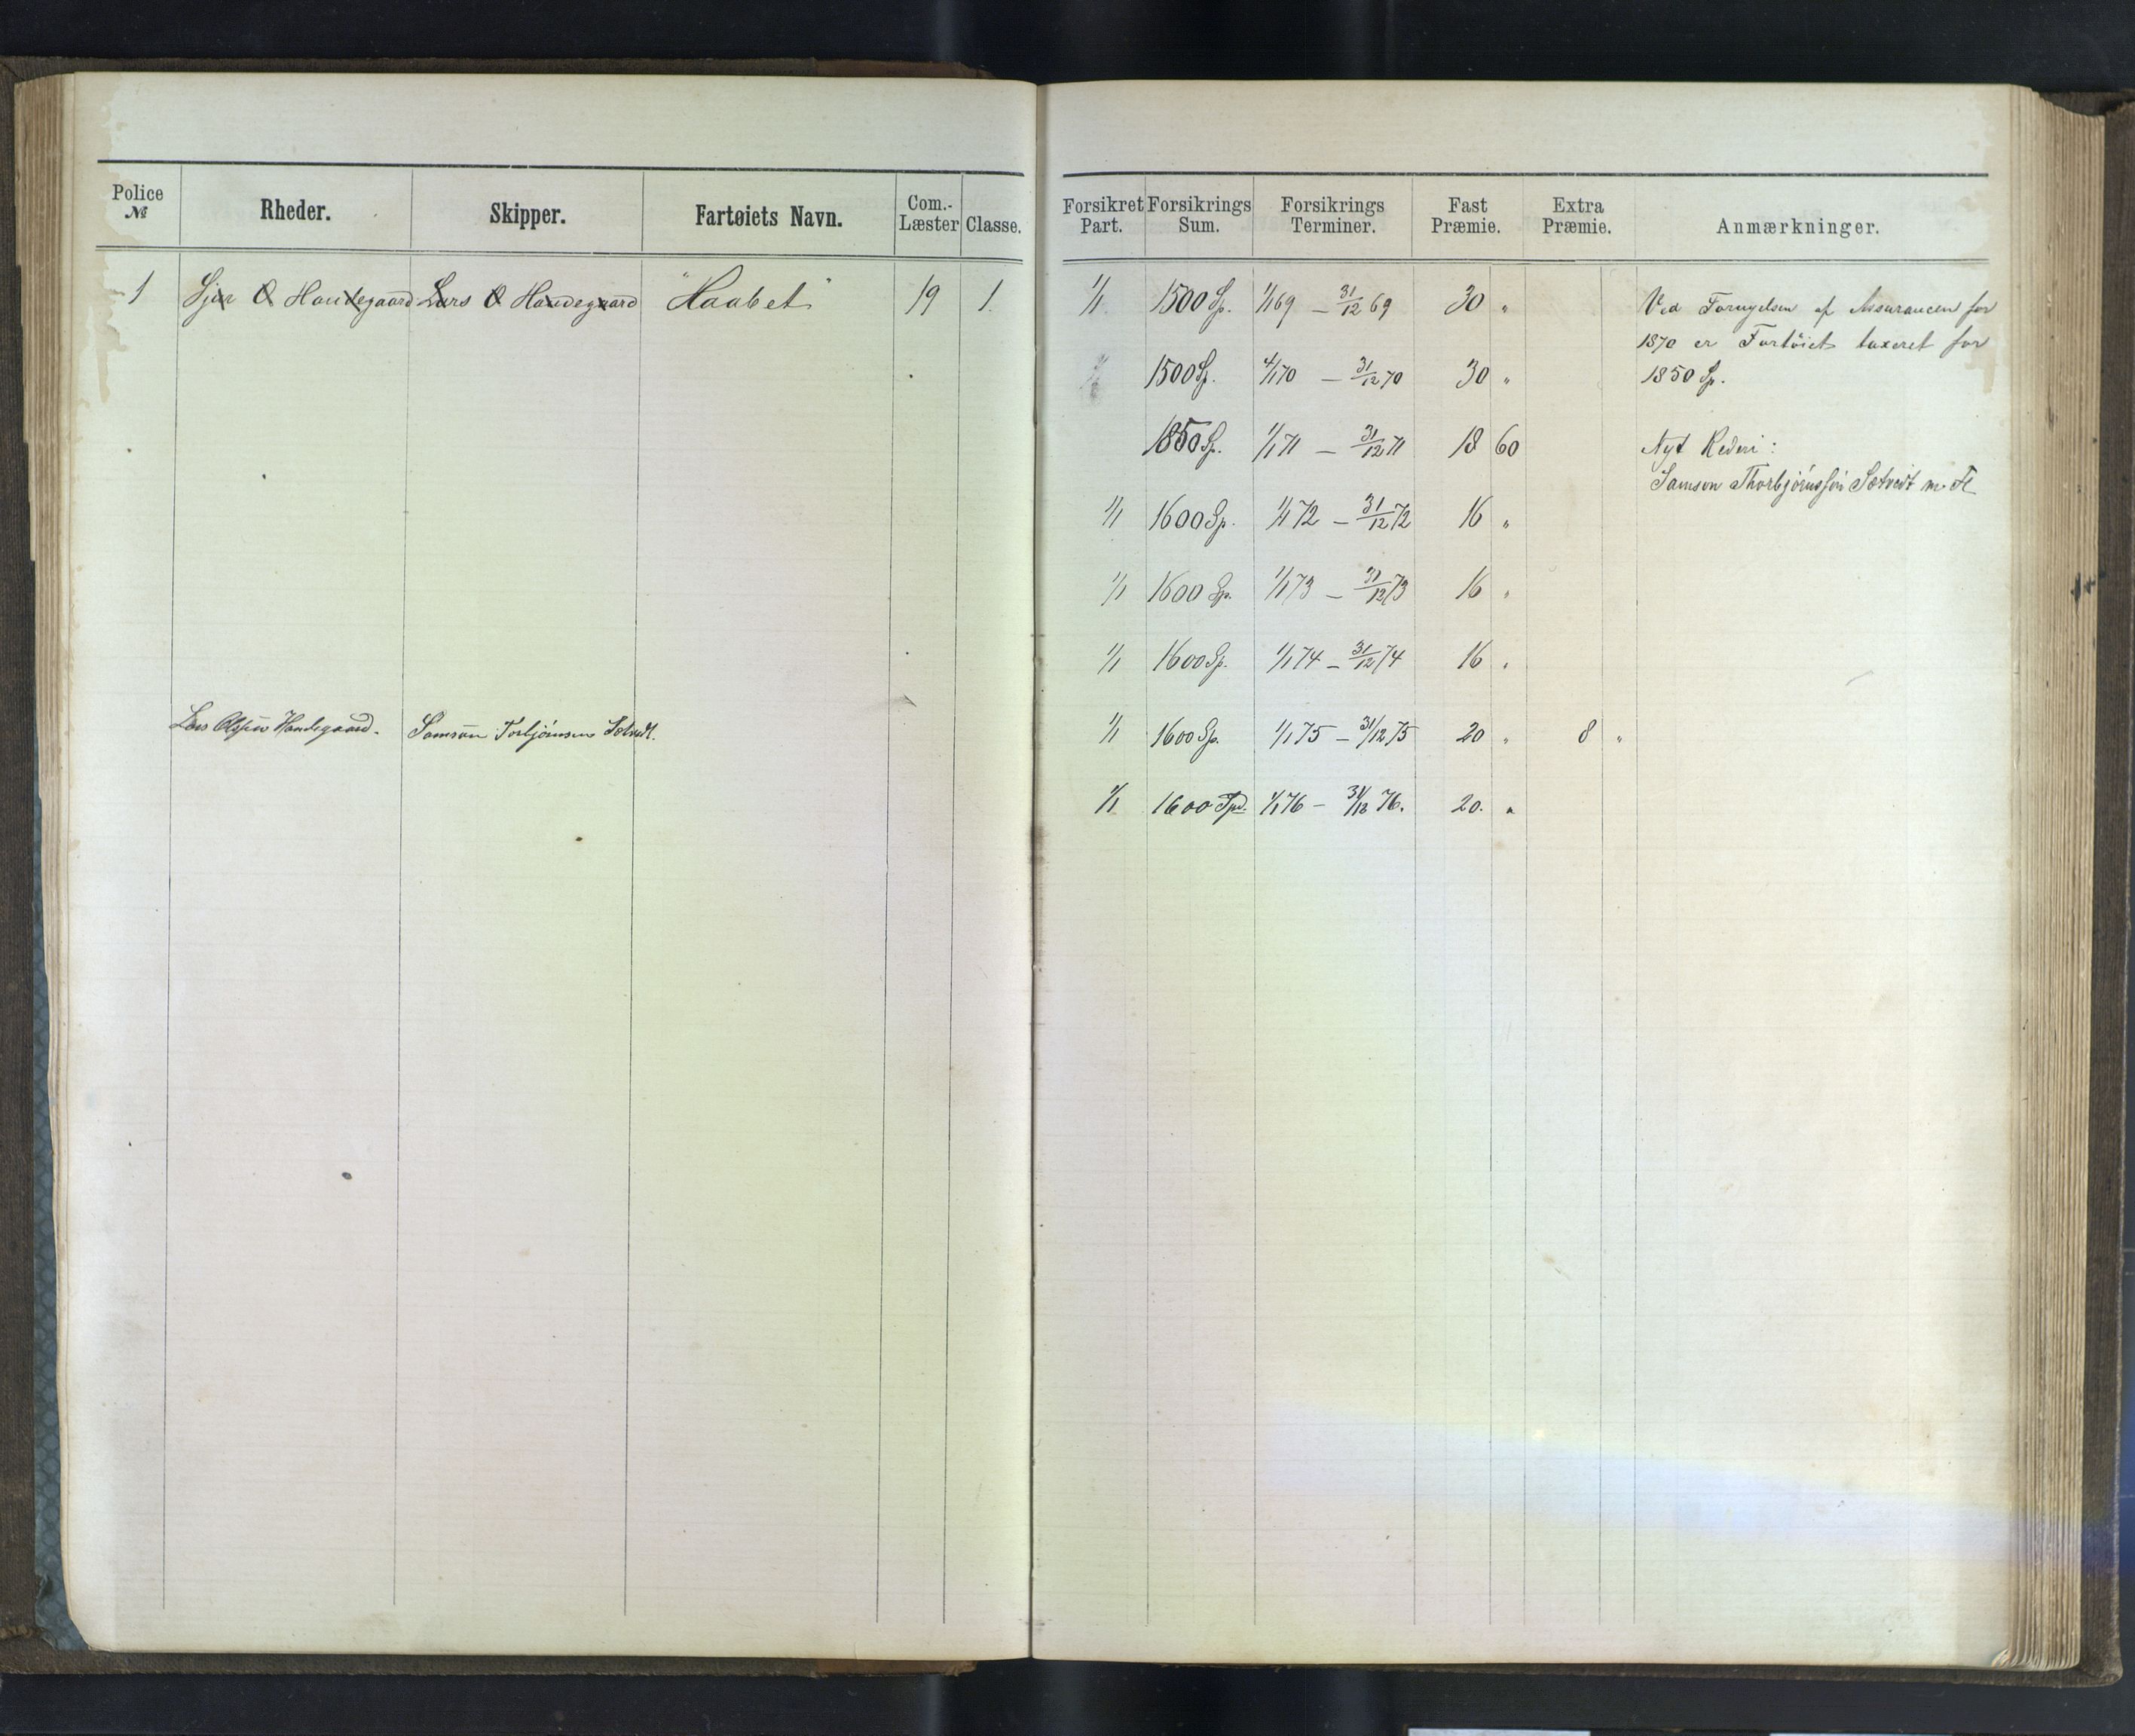 Police № Rheder. Skipper. Fartøiets Navn. Com.-Læster Classe. Forsikret Part. Forsikrings Sum. Forsikrings Terminer. Fast Præmie. Extra Præmie. Anmærkninger.
1 O Handegaard Lars O Handegaard "Haabet" 19 1. 1/1 1500 Sp. 1/1 69 – 31/12 69 30 " Ved Fornyelsen af Assurancen for
1870 er Fartöiet taxeret for
1500 Sp. 4/1 70 – 31/12 70 30 " 1850 Sp.
1850 Sp. 1/1 71 – 31/12 71 18 60 Nyt Rederi:
Samson Thorbjörnssön Sætvedt m. Fl
1/1 1600 Sp. 1/1 72 – 31/12 72 16 "
1/1 1600 Sp. 1/1 73 – 31/12 73 16 "
1/1 1600 Sp. 1/1 74 – 31/12 74 16 "
Lars Handegaard. Samson Torbjörnsen 1/1 1600 Sp. 1/1 75 – 31/12 75 20 " 8 "
1/1 1600 Spd. 1/1 76 – 31/12 76. 20. "